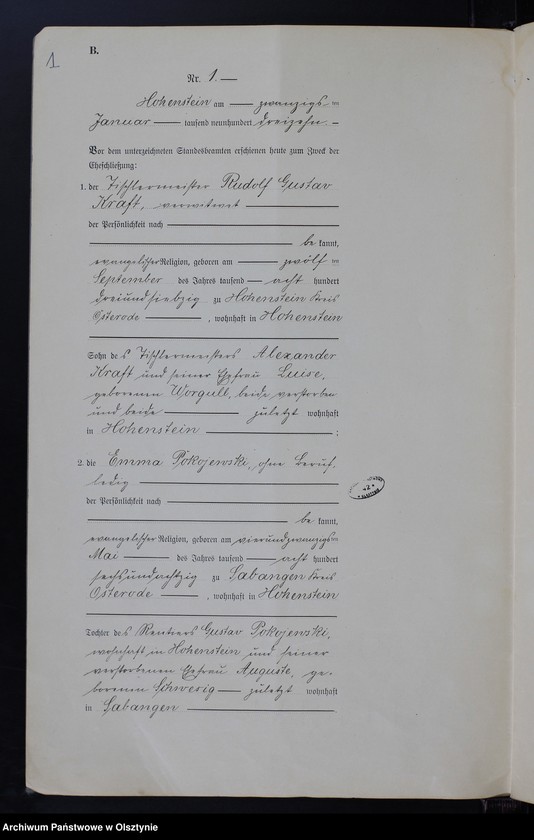 1
B.
Nr. 1.
Hohenstein am zwanzigs ten
Januar tausend neunhundert dreizehn
Vor dem unterzeichneten Standesbeamten erschienen heute zum Zweck der
Eheschließung:
1. der Tischlermeister Rudolf Gustav
Kraft, verwitwet
der Persönlichkeit nach
be kannt,
evangelischer Religion, geboren am zwölf ten
September des Jahres tausend acht hundert
dreiundsiebzig zu Hohenstein Kreis
Osterode, wohnhaft in Hohenstein
Sohn des Tischlermeisters Alexander
Kraft und seiner Ehefrau Luise,
geborenen Worgull, beide verstorben
und beide zuletzt wohnhaft
in Hohenstein ;
2. die Emma Pokojewski, ohne Beruf,
ledig
der Persönlichkeit nach
be kannt,
evangelischer Religion, geboren am vierundzwanzigs ten
Mai des Jahres tausend acht hundert
sechsundachtzig zu Sabangen Kreis
Osterode, wohnhaft in Hohenstein
Tochter des Rentners Gustav Pokojewski,
wohnhaft in Hohenstein und seiner
verstorbenen Ehefrau Auguste, ge-
borenen Schwerig zuletzt wohnhaft
in Sabangen
Archiwum Państwowe w Olsztynie